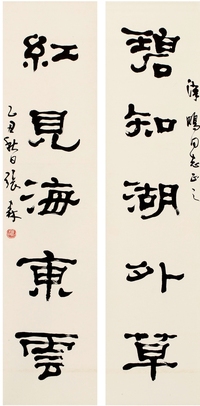 碧知湖外草
漳鳴同志正之
紅見海東雲
乙丑秋日張森